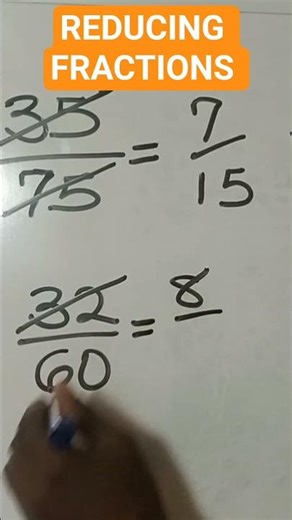 REDUCING
FRACTIONS
35/75 = 7/15
32/60 = 8/